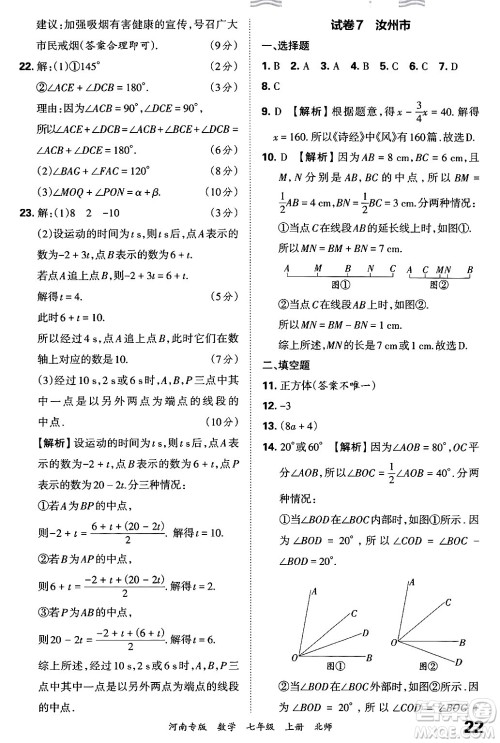 建议:加强吸烟有害健康的宣传,号召广大
市民戒烟(答案合理即可). (9分)
22. 解:(1)①145° (2分)
②∠ACE=∠DCB=60° (3分)
理由:因为∠ACB=90°,∠DCE=90°,
所以∠ACE+∠DCE=∠ACB+∠DCB.
所以∠ACE=∠DCB,∠ACB+∠DCE=
∠ACB+∠DCB. (6分)
(2)∠BAG+∠FAC=120° (8分)
(3)∠MOQ+∠PON=α+β. (10分)
23. 解:(1)8 2 -10 (3分)
(2)设运动的时间为t s,则t s后,点A表示的
数为-2+3t,点B表示的数为6+t.
若点A与点B重合,则-2+3t=6+t.
解得t=4. (5分)
此时6+t=10.
所以经过4 s,点A与点B重合,它们在数
轴上对应的数是10. (7分)
(3)经过2 s,7 s或11 s时,A,B,P三点中其
中一点是以另外两点为端点的线段的
中点. (10分)
【解析】设运动的时间为t s,则t s后,点A表
示的数为-2+t,点B表示的数为6+t,点P
表示的数为20-2t.分三种情况:
①若A为BP的中点,
则-2+t=\frac{6+t+(20-2t)}{2}.
解得t=10.
②若B为AP的中点,
则6+t=\frac{-2+t+(20-2t)}{2}.
解得t=2.
③若P为AB的中点,
则20-2t=\frac{-2+t+6+t}{2}.
解得t=6.
试卷7 汝州市
一、选择题
1. B 2. C 3. A 4. C 5. D 6. A 7. D
8. C
9. D 【解析】根据题意,得x-\frac{3}{4}x=40.解得
x=160.所以《诗经》中《风》有160篇.故选D.
10. D 【解析】因为AB=8 cm,BC=6 cm,且
M,N分别是AB,BC的中点,所以MB=
\frac{1}{2}AB=4 cm,BN=\frac{1}{2}BC=3 cm.分两种情况:
①当点C在线段AB的延长线上时,
A M B N C
图①
A M C N B
图②
②当点C在线段AB上时,如图②所示.
综上所述,MN的长是7 cm或1 cm.故选D.
二、填空题
11. 正方体(答案不唯一)
12. -3
13. (8a+4)
14. 20°或60° 【解析】因为∠AOB=80°,OC平
分∠AOB,所以∠BOC=
①当∠BOD在∠BOC内部时,如图①所示.因
为∠BOD=20°,所以∠COD=∠BOC-
∠BOD=20°.
A
C
D
O B
图①
A
C
B
O D
图②
②当∠BOD在∠BOC外部时,如图②所示.
因为∠BOD=20°,所以∠COD=∠BOC+
河南专版 数学 七年级 上册 北师
22